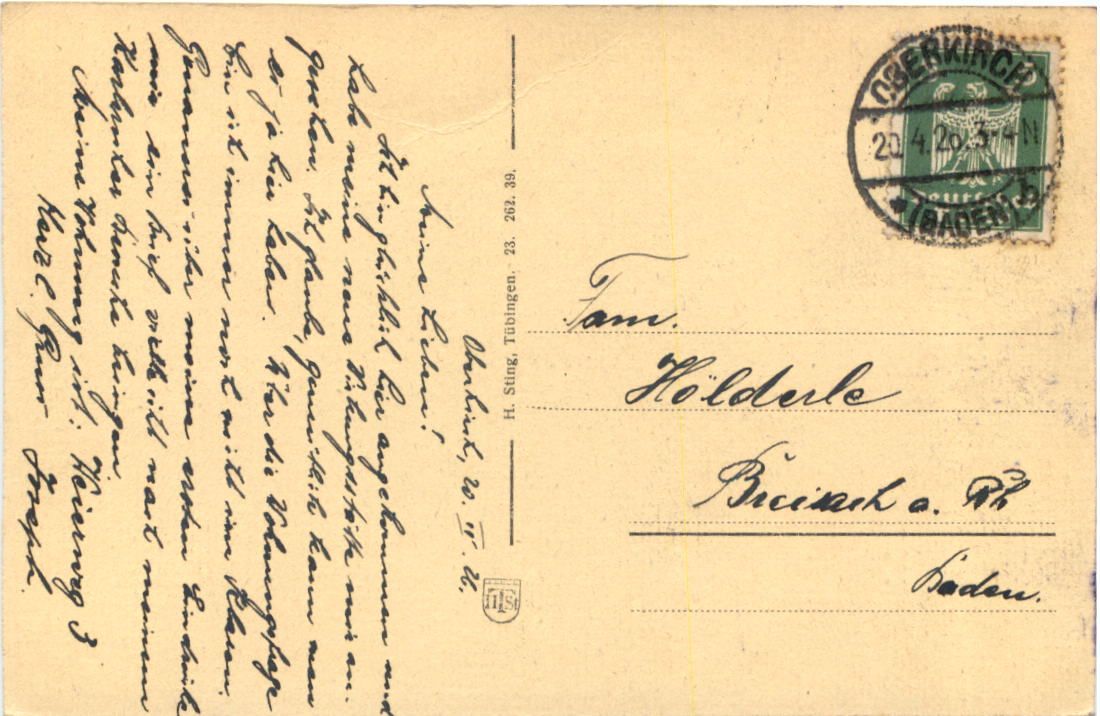 Oberkirch, 20. IV. 26.
Meine Lieben!
Ich bin glücklich hier angekommen und
habe meine neue Wirkungsstätte mir an-
gesehen. Ich glaube, gemütlich kann man
es ja hier haben. Über die Wohnungsfrage
bin ich immer noch nicht im Klaren.
Genaueres über meine ersten Eindrücke
wird ein Brief vielleicht nach meinem
Karlsruher Besuche bringen.
Meine Wohnung ist: Weierweg 3
Herzl. Gruss Joseph.
H. Sting, Tübingen. 23. 262. 39.
HSt
OBERKIRCH
20.4.26. 3-4 N
* (BADEN) b
Fam.
Hölderle
Breisach a. Rh
Baden.